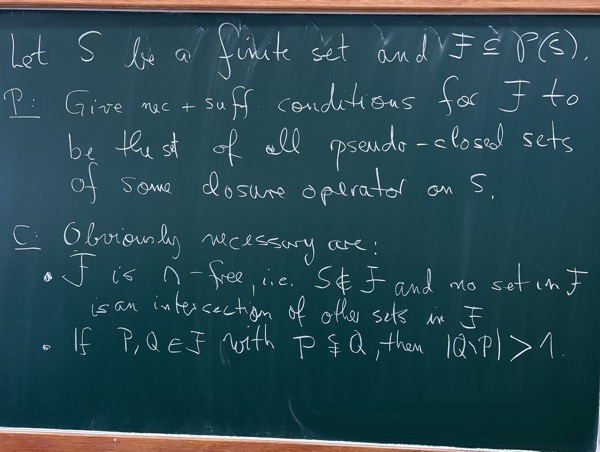 Let S be a finite set and F ⊆ P(S).
P: Give nec + suff. conditions for F to
be the set of all pseudo-closed sets
of some closure operator on S.
C: Obviously necessary are:
• F is ∩-free, i.e. S ∉ F and no set in F
is an intersection of other sets in F
• If P, Q ∈ F with P ⊊ Q, then |Q\P| > 1.